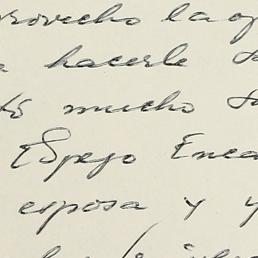 provecho la op
hacerle sa
mucho sa
Espejo Enca
esposa y y